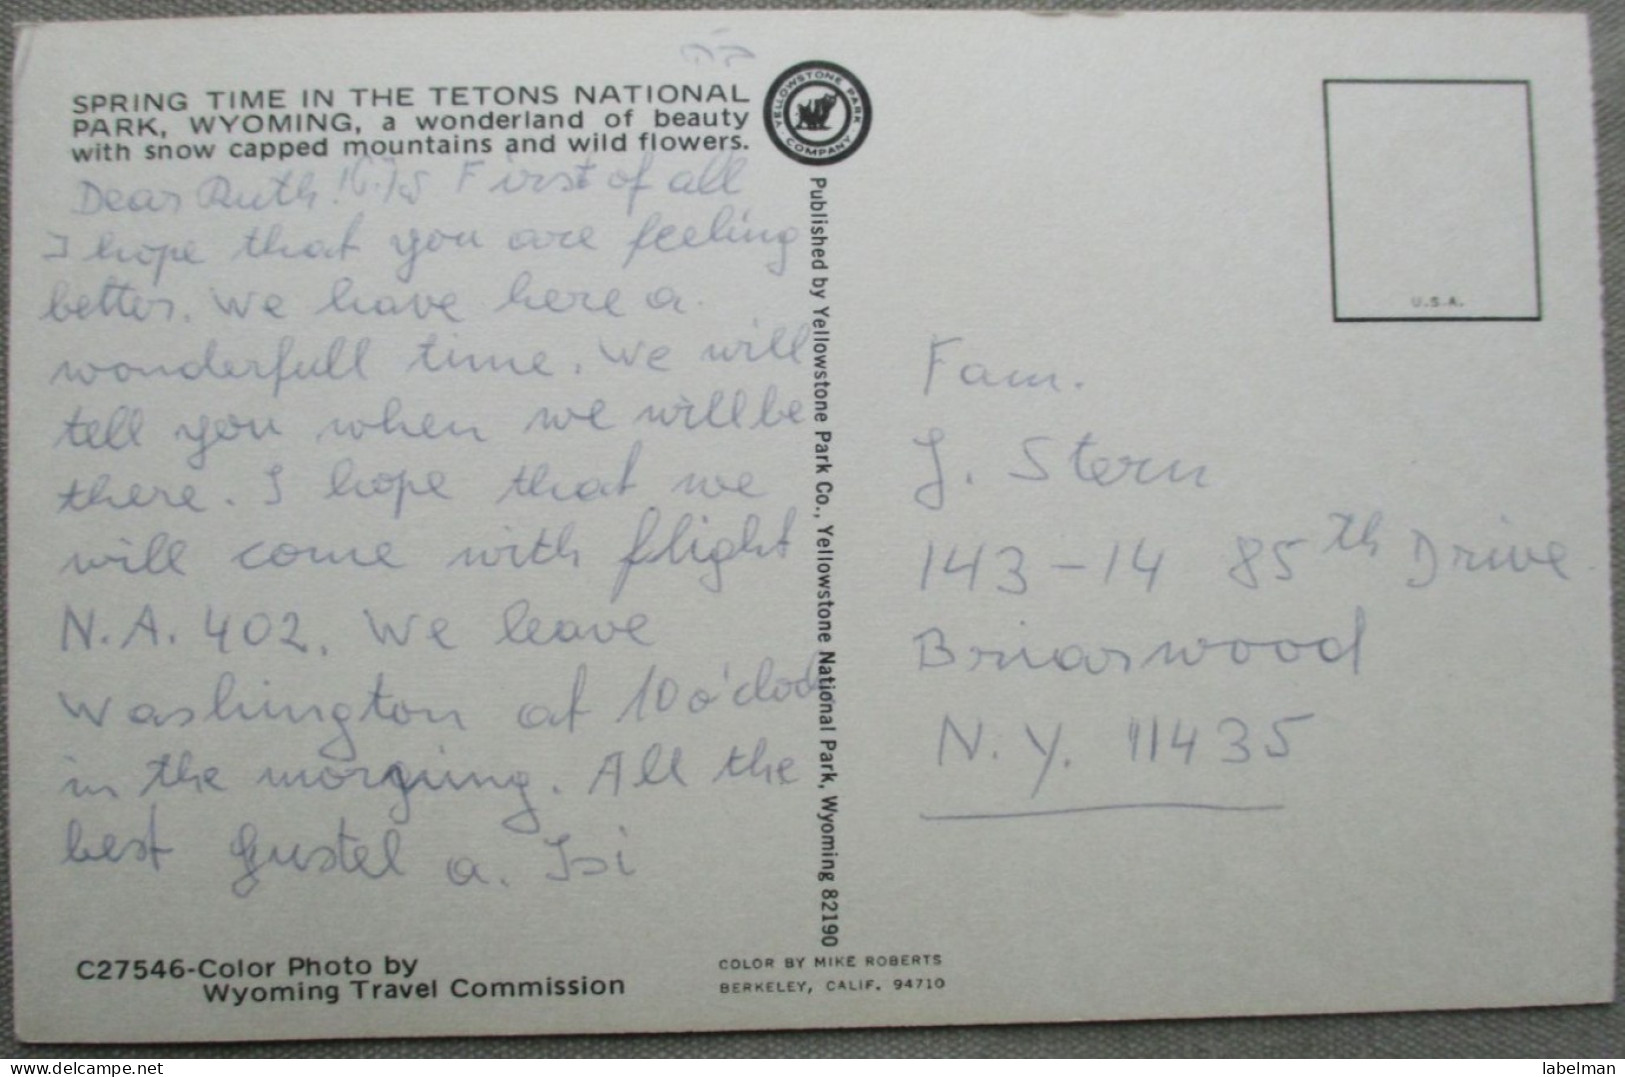 ב״ה
SPRING TIME IN THE TETONS NATIONAL
PARK, WYOMING, a wonderland of beauty
with snow capped mountains and wild flowers.
YELLOWSTONE PARK
COMPANY
Dear Ruth! First of all
I hope that you are feeling
better. We have here a
wonderfull time. We will
tell you when we will be
there. I hope that we
will come with flight
N.A. 402. We leave
Washington at 10 o'clock
in the morning. All the
best Gustel a. Isi
C27546-Color Photo by
Wyoming Travel Commission
Published by Yellowstone Park Co., Yellowstone National Park, Wyoming 82190
COLOR BY MIKE ROBERTS
BERKELEY, CALIF. 94710
U.S.A.
Fam.
J. Stern
143-14 85th Drive
Briarwood
N.Y. 11435
delcampe.net
labelman